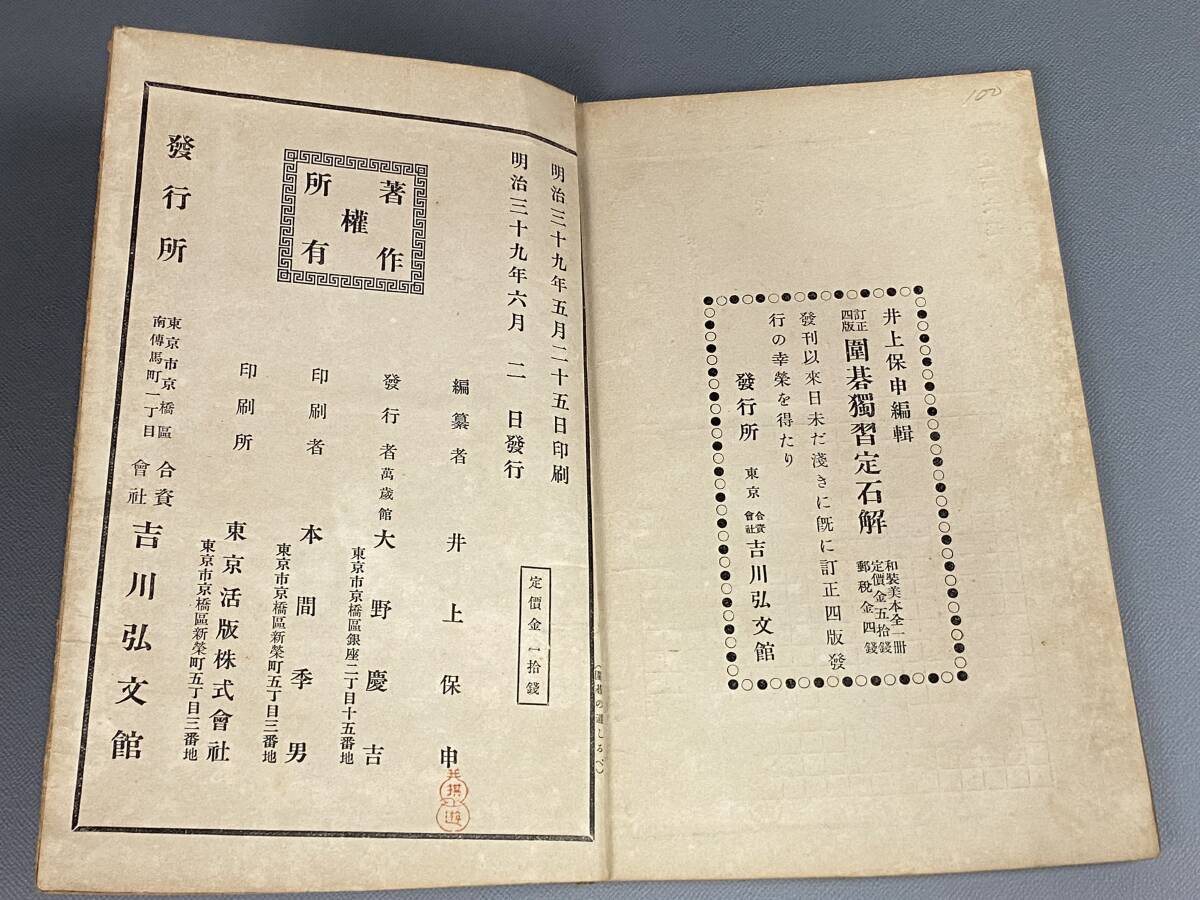 100
井上保申編輯
訂正四版
圍碁獨習定石解
和裝美本全一册
定價金五拾錢
郵稅金四錢
發刊以來日未だ淺きに旣に訂正四版發
行の幸榮を得たり
發行所
東京
合資會社
吉川弘文館
(圍碁の道しるべ)
明治三十九年五月二十五日印刷
明治三十九年六月二日發行
定價金一拾錢
著作權所有
編纂者 井上保申
發行者 萬歲館 大野慶吉
東京市京橋區銀座二丁目十五番地
印刷者 本間季男
東京市京橋區新榮町五丁目三番地
印刷所 東京活版株式會社
東京市京橋區新榮町五丁目三番地
發行所
東京市京橋區
南傳馬町一丁目
合資會社
吉川弘文館